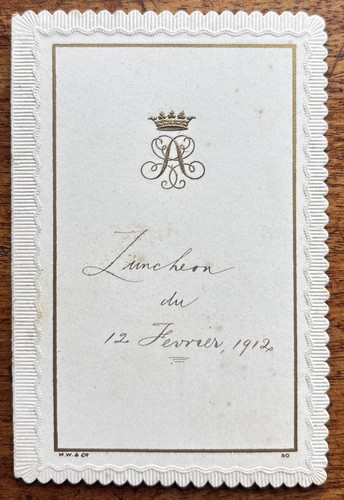 A
Luncheon
du
12 Fevrier, 1912
H.W. & Co
50